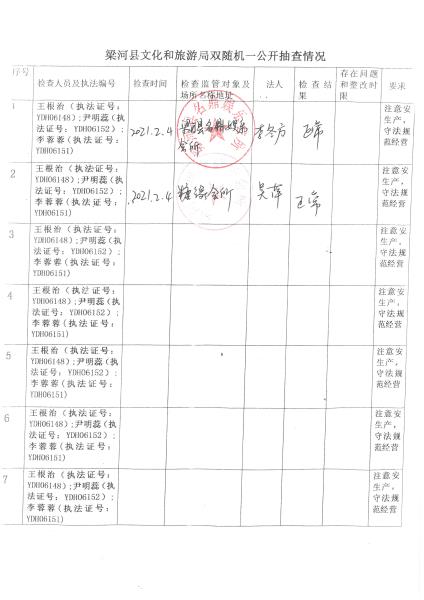 梁河县文化和旅游局双随机一公开抽查情况
序号 检查人员及执法编号 检查时间 检查监管对象及场所名称地址 法人 检查结果 存在问题和整改时限 要求
1
王根治(执法证号:
YDH06148);尹明蕊(执
法证号:YDH06152);
李蓉蓉(执法证号:
YDH06151)
2021.2.4
会所
正常
注意安
生产,
守法规
范经营
2
王根治(执法证号:
YDH06148);尹明蕊(执
法证号:YDH06152);
李蓉蓉(执法证号:
YDH06151)
2021.2.4
会所
吴萍
正常
注意安
生产,
守法规
范经营
3
王根治(执法证号:
YDH06148);尹明蕊(执
法证号:YDH06152);
李蓉蓉(执法证号:
YDH06151)
注意安
生产,
守法规
范经营
4
王根治(执法证号:
YDH06148);尹明蕊(执
法证号:YDH06152);
李蓉蓉(执法证号:
YDH06151)
注意安
生产,
守法规
范经营
5
王根治(执法证号:
YDH06148);尹明蕊(执
法证号:YDH06152);
李蓉蓉(执法证号:
YDH06151)
注意安
生产,
守法规
范经营
6
王根治(执法证号:
YDH06148);尹明蕊(执
法证号:YDH06152);
李蓉蓉(执法证号:
YDH06151)
注意安
生产,
守法规
范经营
7
王根治(执法证号:
YDH06148);尹明蕊(执
法证号:YDH06152);
李蓉蓉(执法证号:
YDH06151)
注意安
生产,
守法规
范经营